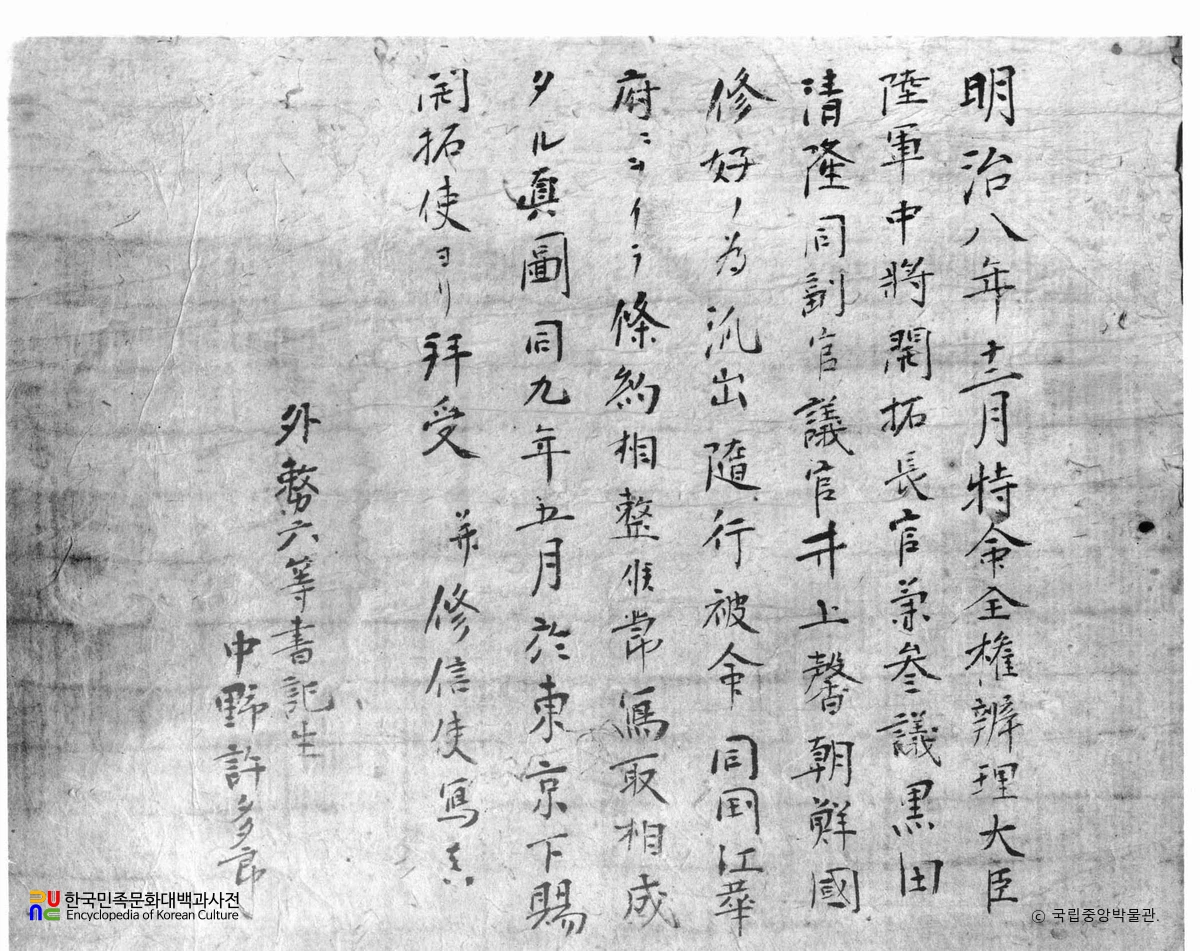 明治八年十二月特命全権辨理大臣
陸軍中將開拓長官兼参議黒田
清隆同副官議官井上馨朝鮮國
修好ノ為派出随行被命同国江華
府ニヨイテ條約相整候節寫取相成
タル真圖同九年五月於東京下賜
開拓使ヨリ拜受 并修信使寫真
外務六等書記生
中野許多郎
한국민족문화대백과사전
Encyclopedia of Korean Culture
© 국립중앙박물관.